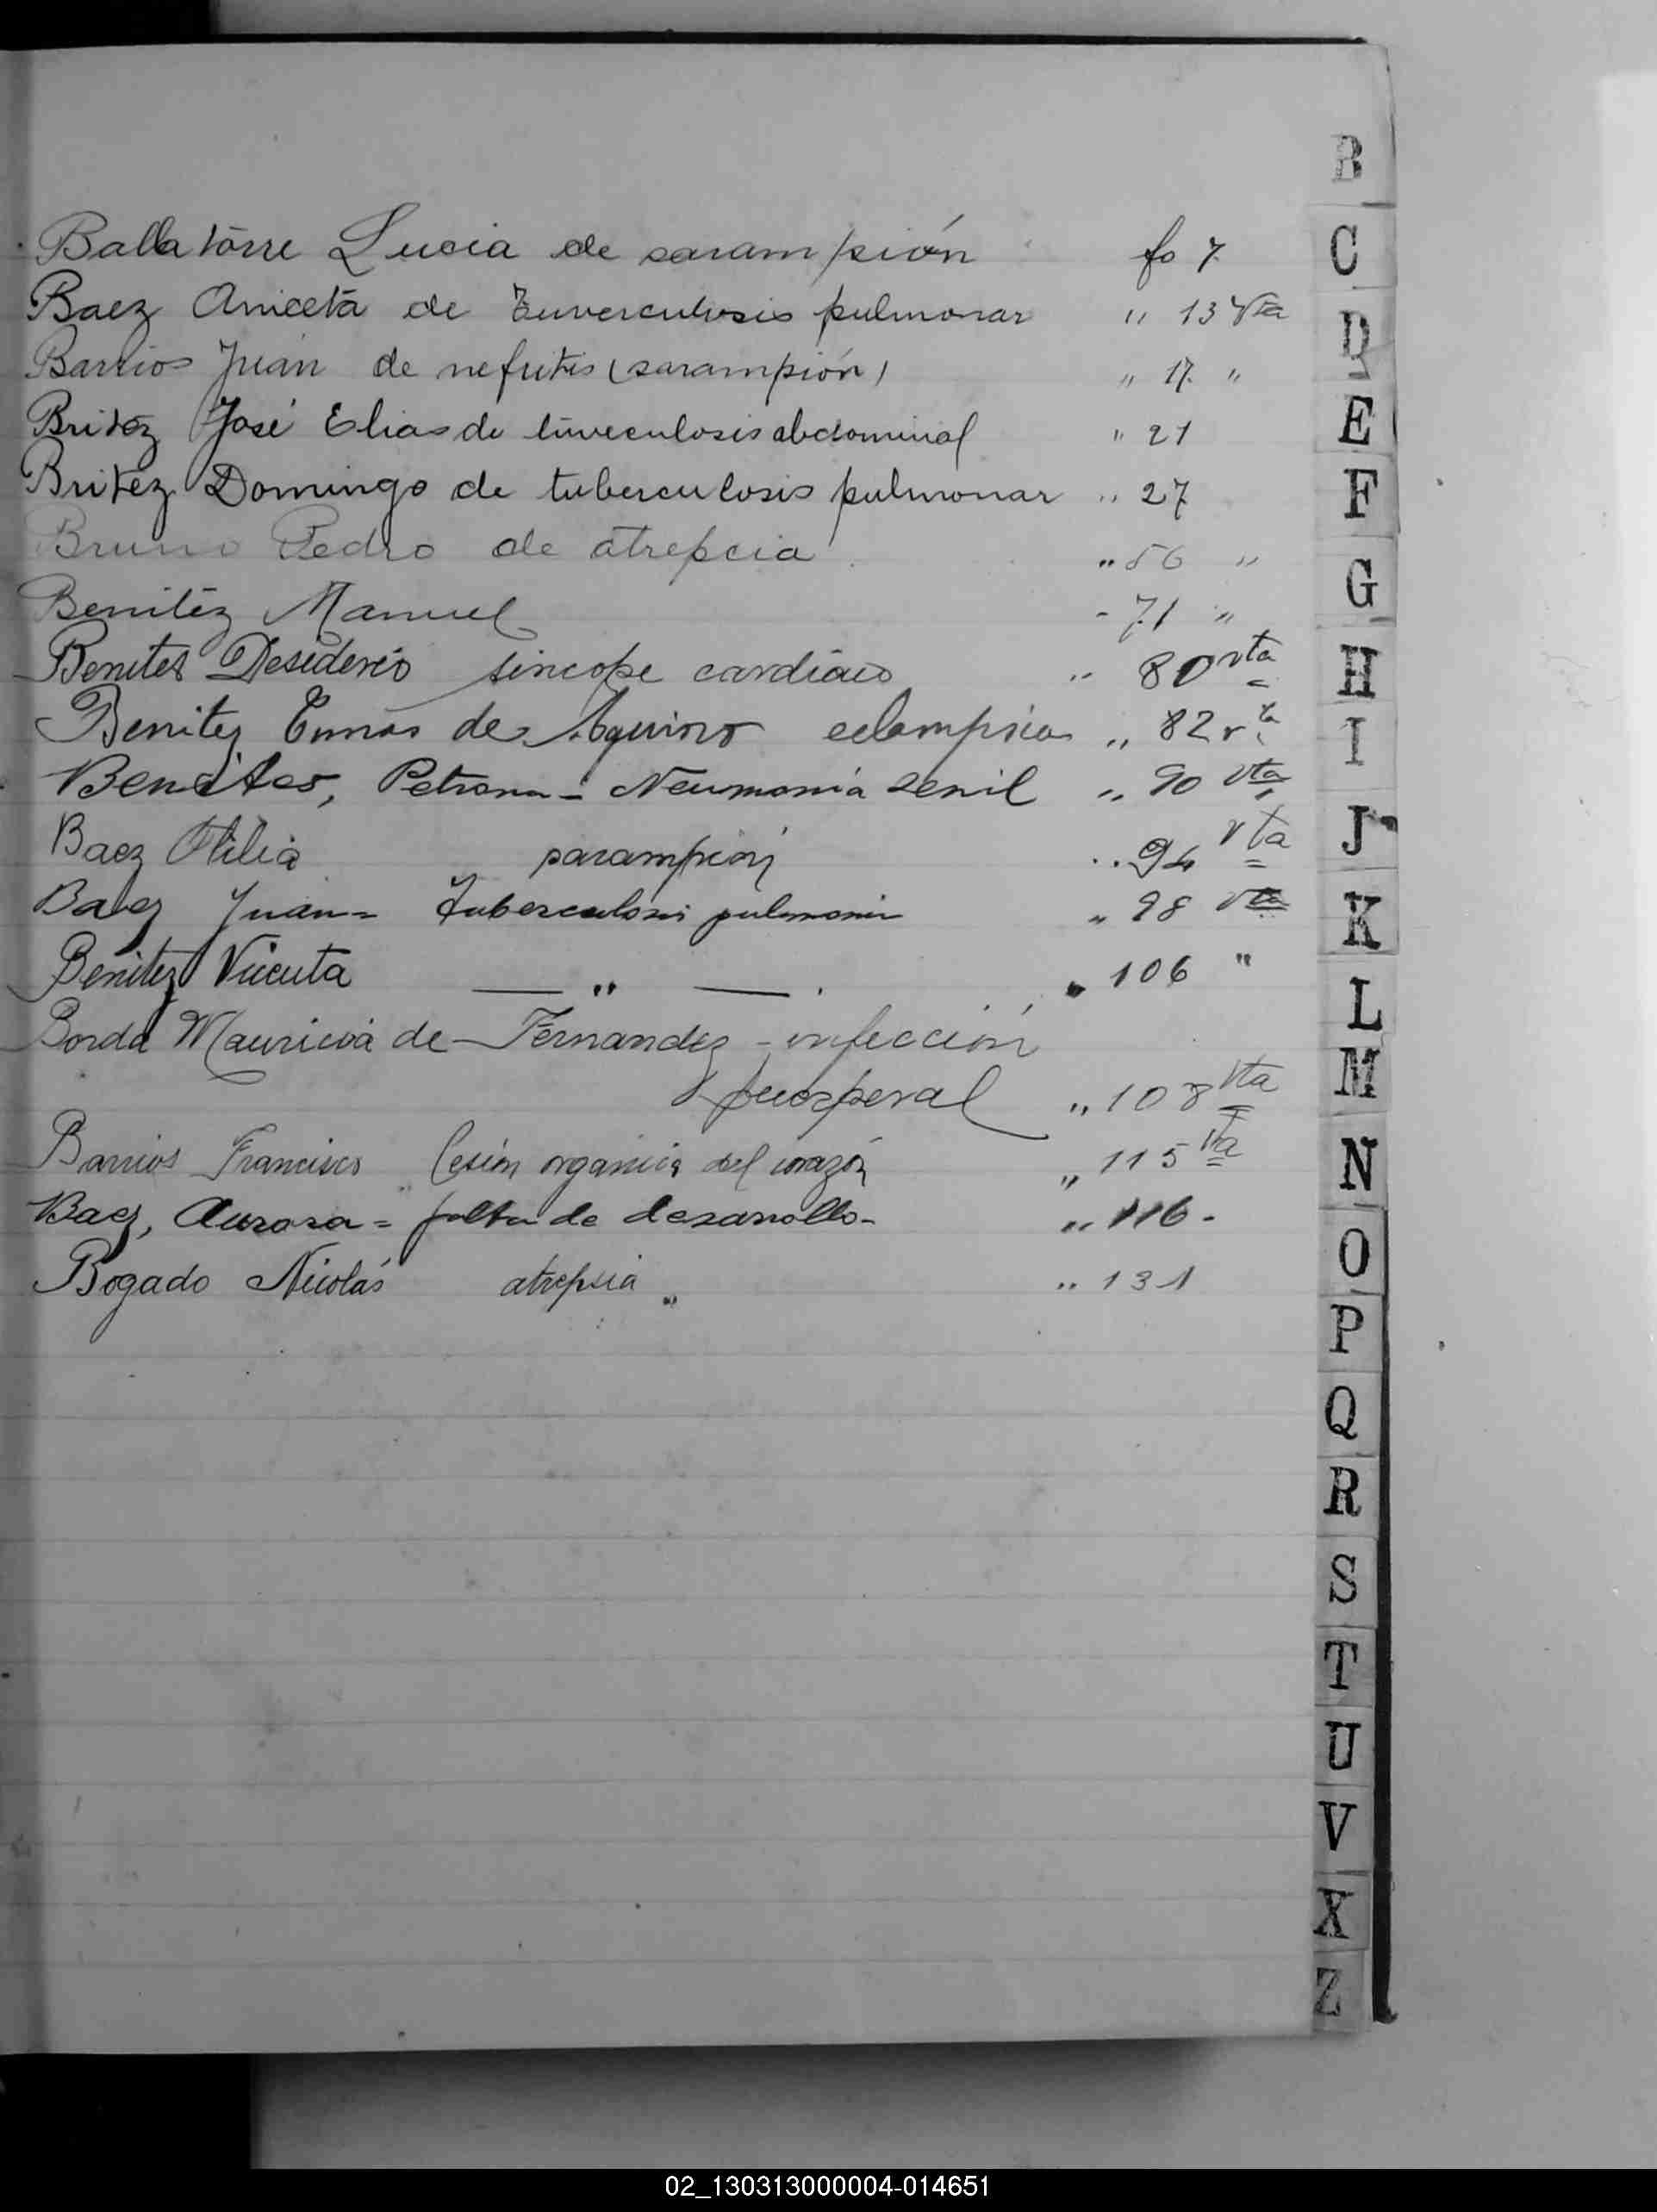 B
Ballatorre Lucia de sarampión fo 7
C
Baez Aniceta de Tuverculosis pulmonar " 13 Vta
D
Barrios Juan de nefritis (sarampión) " 17. "
E
Britez José Elias de tuveculosis abdominal " 21
Britez Domingo de tuberculosis pulmonar " 27
F
Bruno Pedro de atrepcia " 56 "
G
Benitez Manuel - 71 "
Benites Desiderio sincope cardiaco " 80 vta
H
Benitez Tomás de Aquino eclampsia " 82 vta
I
Benites, Petrona - Neumonia senil " 90 vta
J
Baez Otilia sarampión " 94 vta
Baez Juan = Tuberculosis pulmonar " 98 vta
K
Benitez Vicenta — " — . " 106 "
L
Borda Mauricia de Fernandez - infección
puerperal " 108 vta
M
Barrios Francisco lesión organica del corazón " 115 vta
N
Baez, Aurora = falta de desarrollo - " 116 -
O
Bogado Nicolás atrepsia " " 131
P
Q
R
S
T
U
V
X
Z
02_130313000004-014651